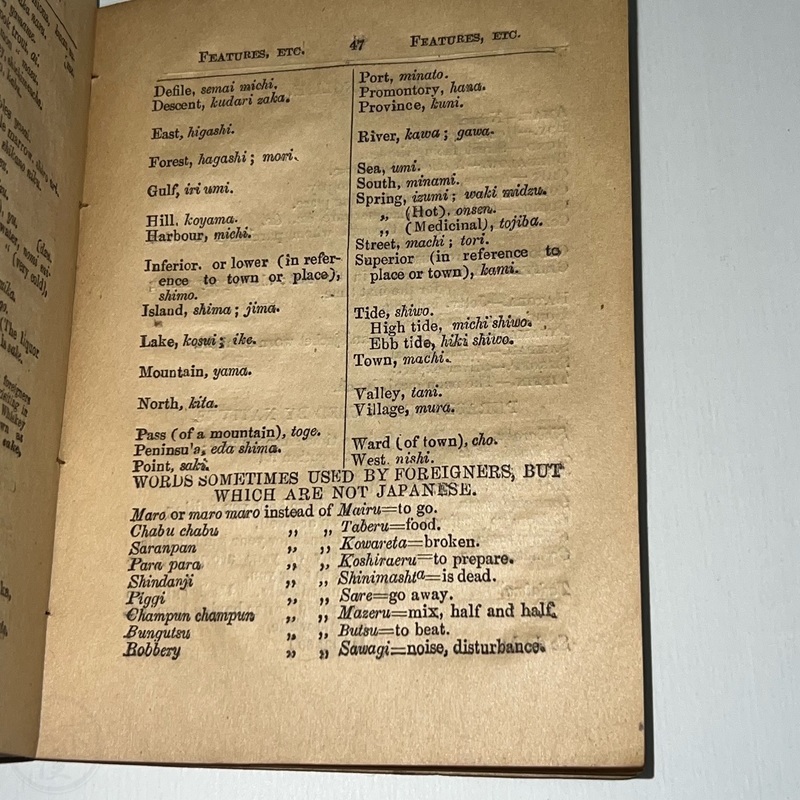 FEATURES, ETC. 47 FEATURES, ETC.
Defile, semai michi.
Descent, kudari zaka.
East, higashi.
Forest, hagashi; mori.
Gulf, iri umi.
Hill, koyama.
Harbour, michi.
Inferior. or lower (in refer-
ence to town or place),
shimo.
Island, shima; jima.
Lake, kosui; ike.
Mountain, yama.
North, kita.
Pass (of a mountain), toge.
Peninsu'a, eda shima.
Point, saki.
Port, minato.
Promontory, hana.
Province, kuni.
River, kawa; gawa.
Sea, umi.
South, minami.
Spring, izumi; waki midzu.
„ (Hot), onsen.
„ (Medicinal), tojiba.
Street, machi; tori.
Superior (in reference to
place or town), kami.
Tide, shiwo.
High tide, michi shiwo.
Ebb tide, hiki shiwo.
Town, machi.
Valley, tani.
Village, mura.
Ward (of town), cho.
West, nishi.
WORDS SOMETIMES USED BY FOREIGNERS, BUT
WHICH ARE NOT JAPANESE.
Maro or maro maro instead of Mairu=to go.
Chabu chabu „ „ Taberu=food.
Saranpan „ „ Kowareta=broken.
Para para „ „ Koshiraeru=to prepare.
Shindanji „ „ Shinimashta=is dead.
Piggi „ „ Sare=go away.
Champun champun „ „ Mazeru=mix, half and half.
Bungutsu „ „ Butsu=to beat.
Bobbery „ „ Sawagi=noise, disturbance.